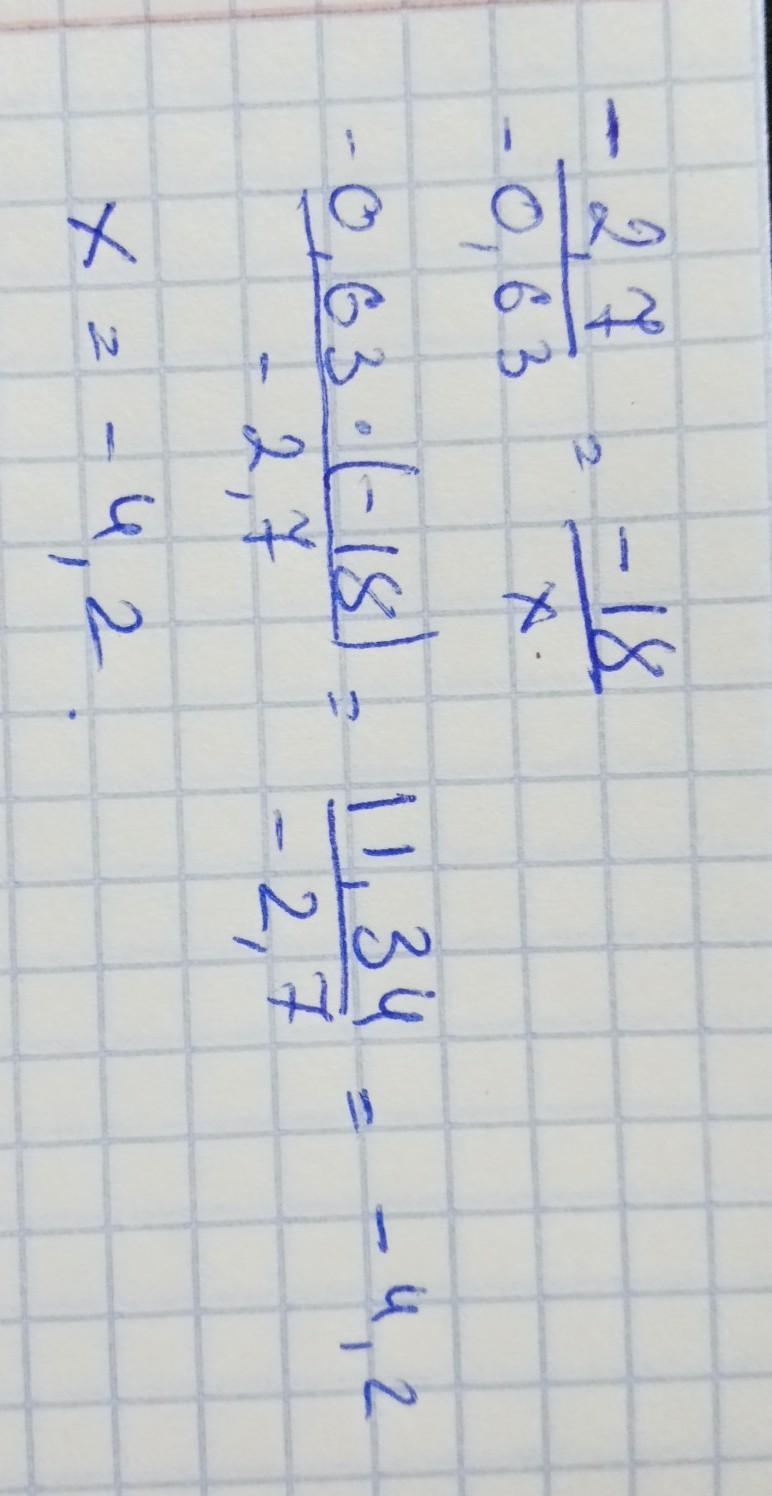 -2,7 / -0,63 = -18 / x
-0,63 · (-18) / -2,7 = 11,34 / -2,7 = -4,2
x = -4,2.